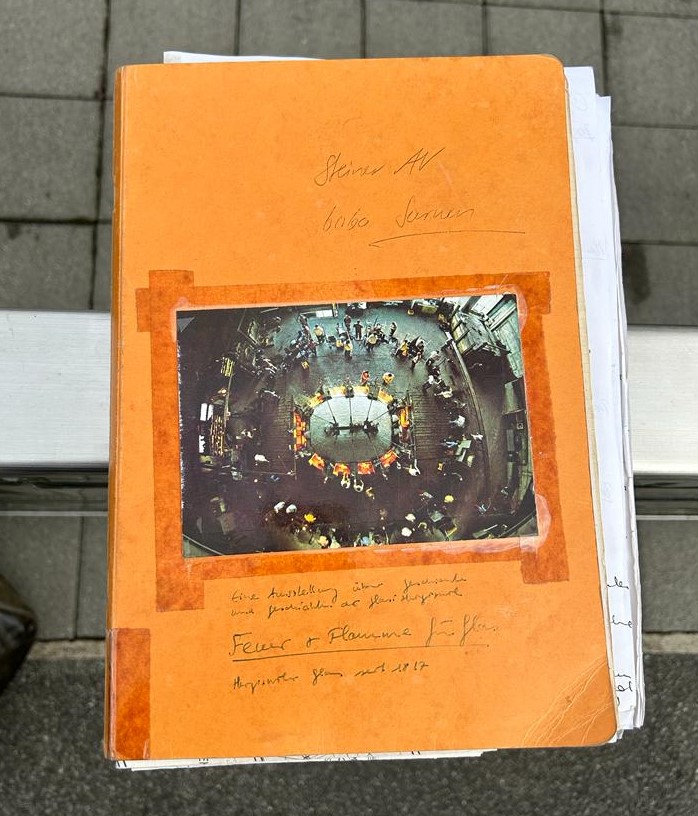 Steiner AV
6060 Sarnen
Eine Ausstellung über
und Geschichten der Glasi Hergiswil
Feuer & Flamme für Glas
Hergiswiler Glas seit 1817